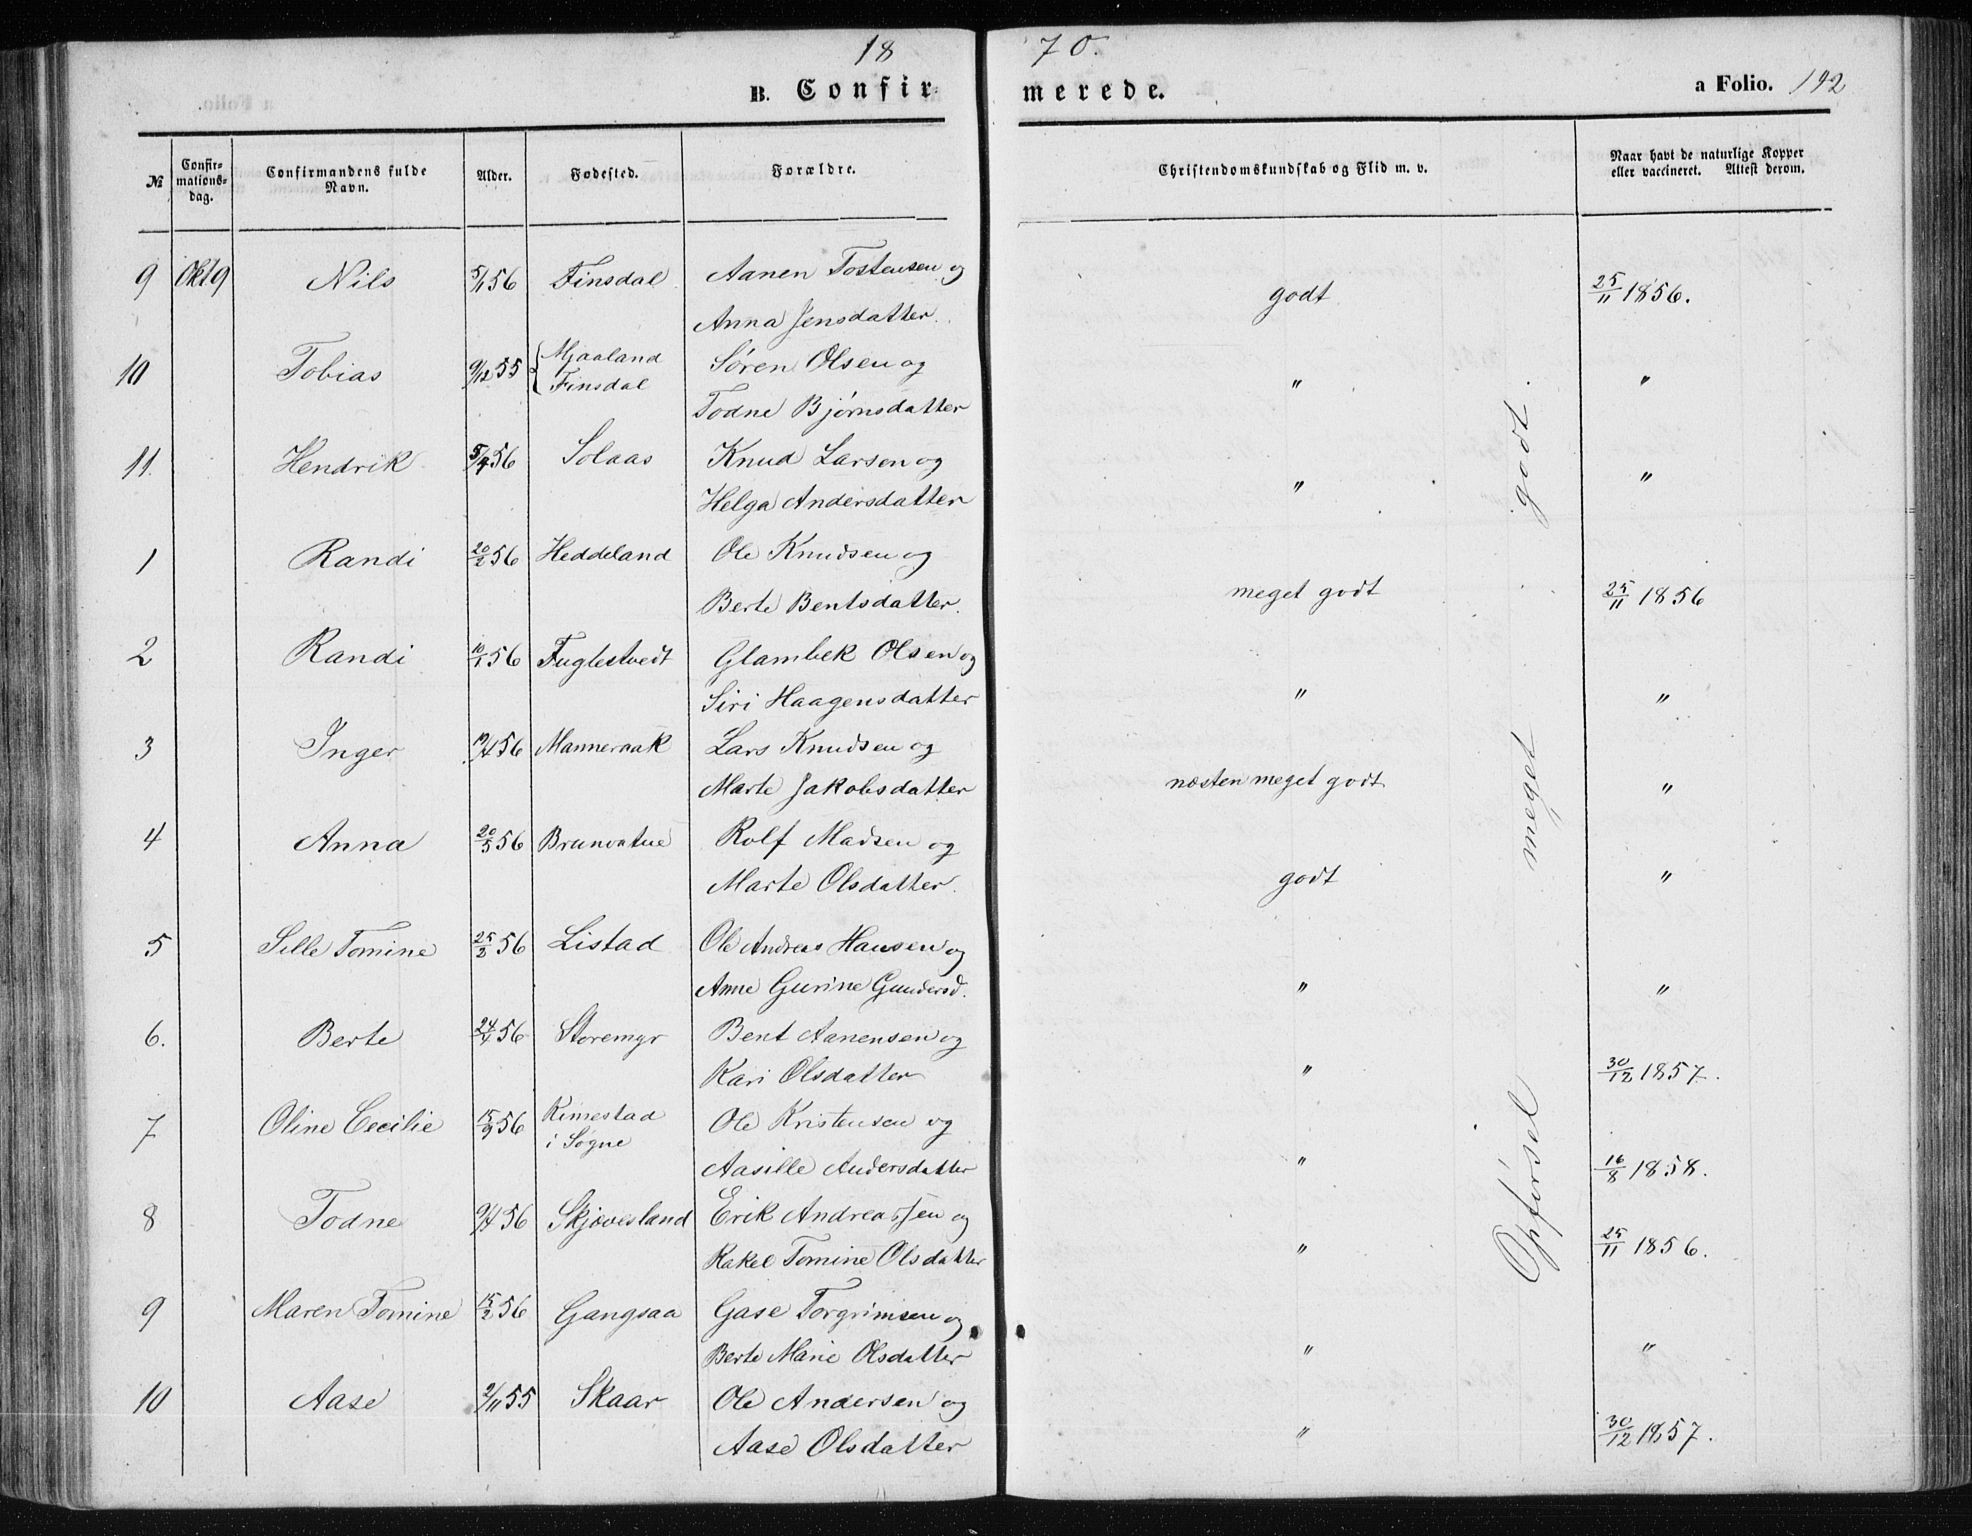 18 70.
B. Confirmerede. a Folio. 192
№ Confirmations-dag. Confirmandens fulde Navn. Alder. Fødested. Forældre. Christendomskundskab og Flid m. v. Naar havt de naturlige Kopper eller vaccineret. Attest derom.
9 Okt 9 Nils 5/1 56 Finsdal Aanen Tostensen og
Anna Jensdatter. godt 25/11 1856.
10 Tobias 9/12 55 { Mjaaland Søren Olsen og
Finsdal Todne Bjørnsdatter " "
11. Hendrik 56 Solaas Knud Larsen og
Helga Andersdatter " "
1 Randi 20/2 56 Heddeland Ole Knudsen og
Berte Bentsdatter. meget godt 25/11 1856
2 Randi 10/1 56 Fuglestvedt Glambek Olsen og
Siri Haagensdatter " "
3 Inger 56 Manneraak Lars Knudsen og
Marte Jakobsdatter næsten meget godt "
4 Anna 20/5 56 Brunvatne Rolf Madsen og
Marte Olsdatter. godt "
5 Sille Tomine 25/2 56 Listad Ole Andreas Hansen og
Anne Gurine Gundersd. " "
6. Berte 24/4 56 Storemyr Bent Aanensen og
Kari Olsdatter " 30/12 1857.
7 Oline Cecilie 15/9 56 Rimestad Ole Kristensen og
i Søgne Aasille Andersdatter " 16/8 1858.
8 Todne 9/4 56 Skjævesland Erik Andreassen og
Rakel Tomine Olsdatter " 25/11 1856.
9 Maren Tomine 15/2 56 Gangsaa Gase Torgrimsen og
Berte Marie Olsdatter " "
10 Aase 2/11 55 Skaar Ole Andersen og
Aase Olsdatter " 30/12 1857.
Opførsel meget godt.